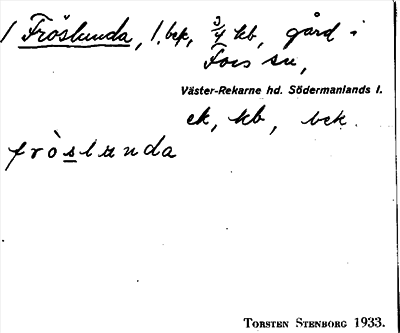 1 Fröslunda, l. bek, 3/4 kb, gård i
Fors sn,
Väster-Rekarne hd. Södermanlands l.
ek, kb, bek.
fròslunda
TORSTEN STENBORG 1933.